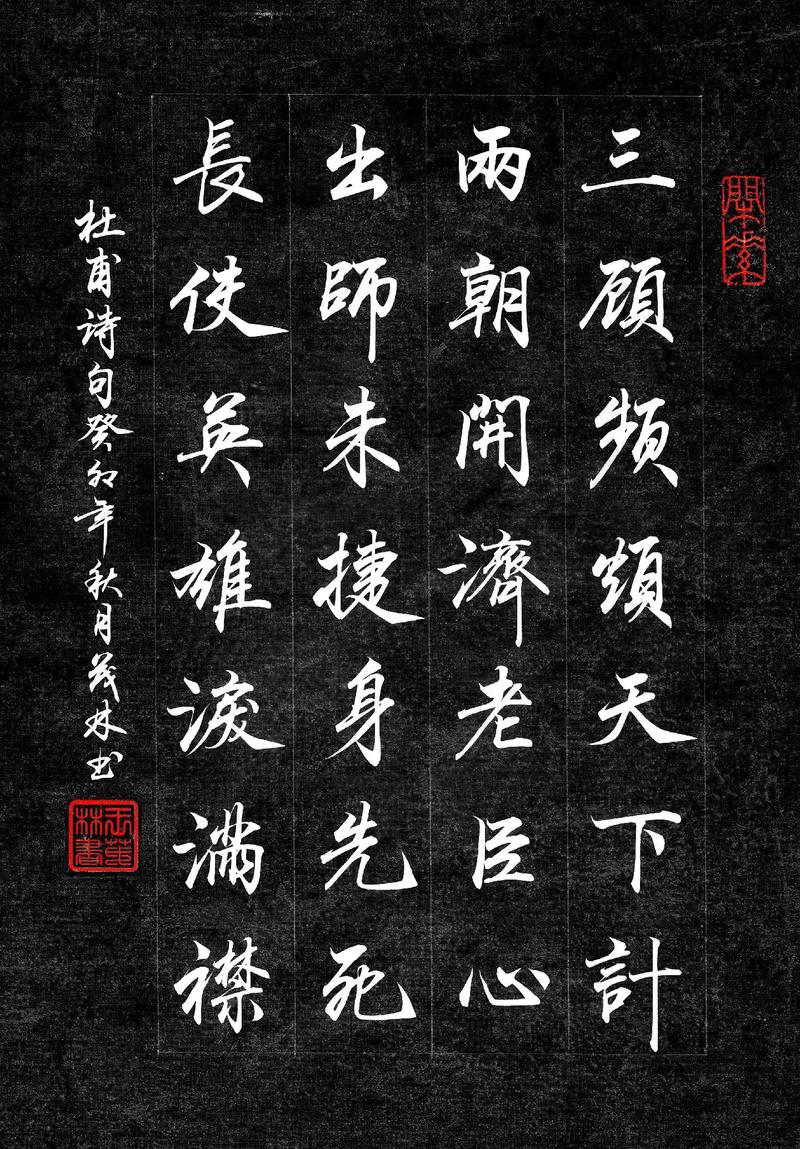 三顧頻煩天下計
兩朝開濟老臣心
出師未捷身先死
長使英雄淚滿襟
杜甫诗句癸卯年秋月茂林书